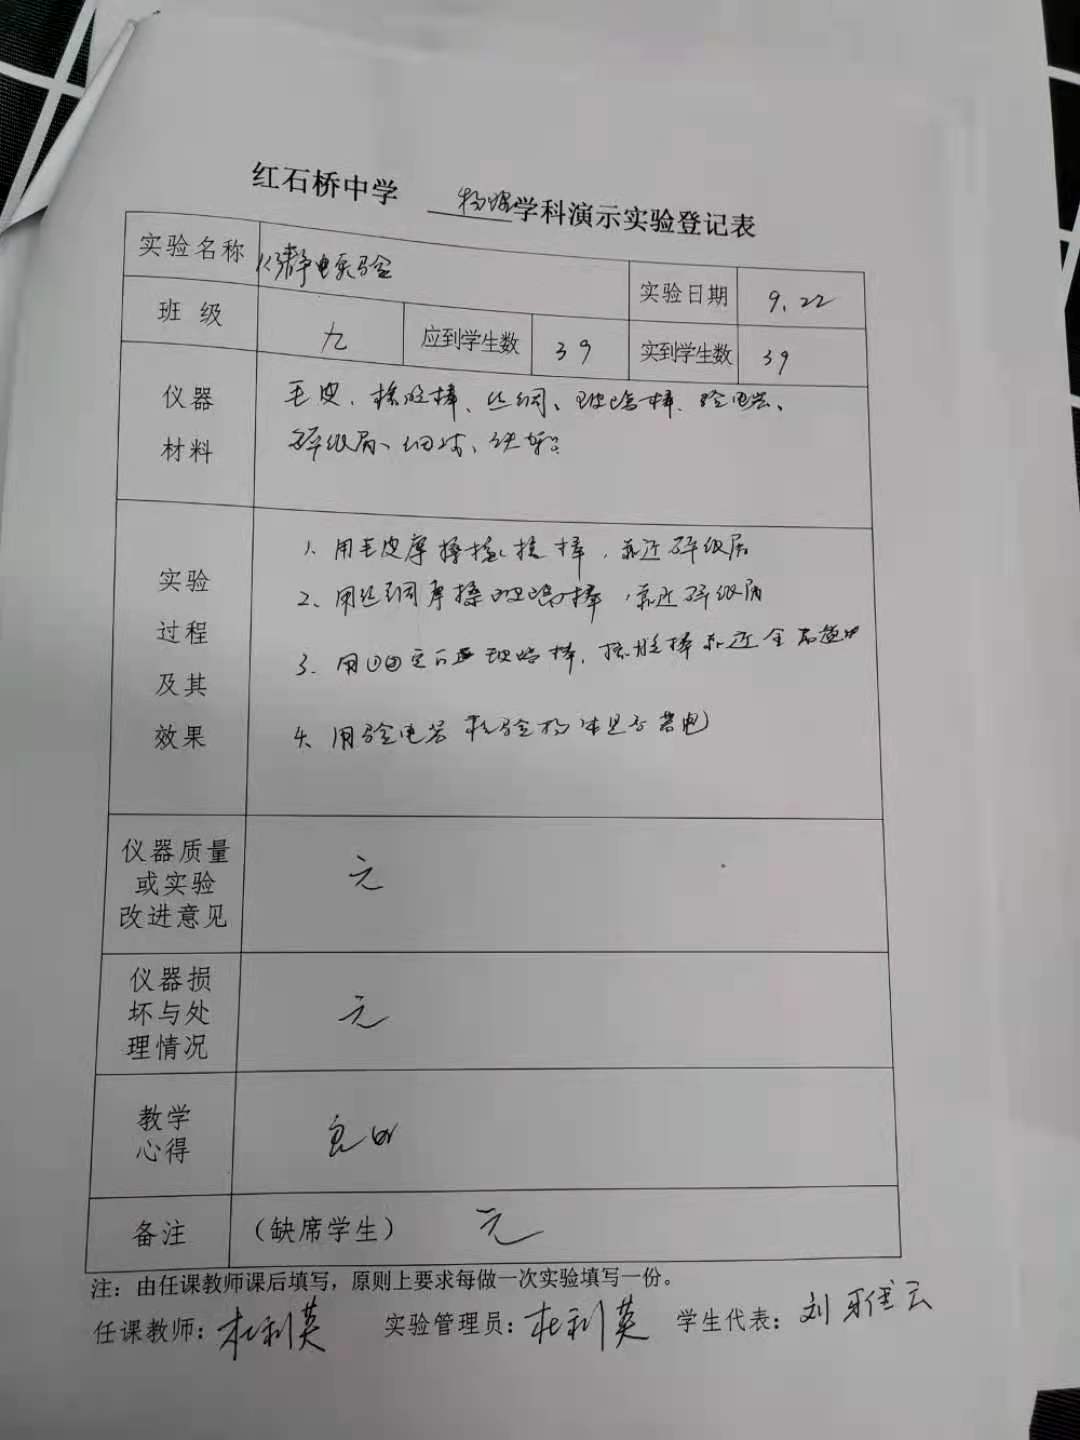 红石桥中学 物理学科演示实验登记表
实验名称 静电实验 实验日期 9.22
班级 九 应到学生数 39 实到学生数 39
仪器材料 毛皮、橡胶棒、丝绸、玻璃棒、验电器、
碎纸屑、细线、铁架台
实验过程及其效果
1、用毛皮摩擦橡胶棒,靠近碎纸屑
2、用丝绸摩擦玻璃棒,靠近碎纸屑
3、用①② 玻璃棒,橡胶棒靠近金属
4、用验电器检验物体是否带电
仪器质量或实验改进意见 无
仪器损坏与处理情况 无
教学心得 良好
备注 (缺席学生) 无
注:由任课教师课后填写,原则上要求每做一次实验填写一份。
任课教师:杜利英 实验管理员:杜利英 学生代表:刘雅云